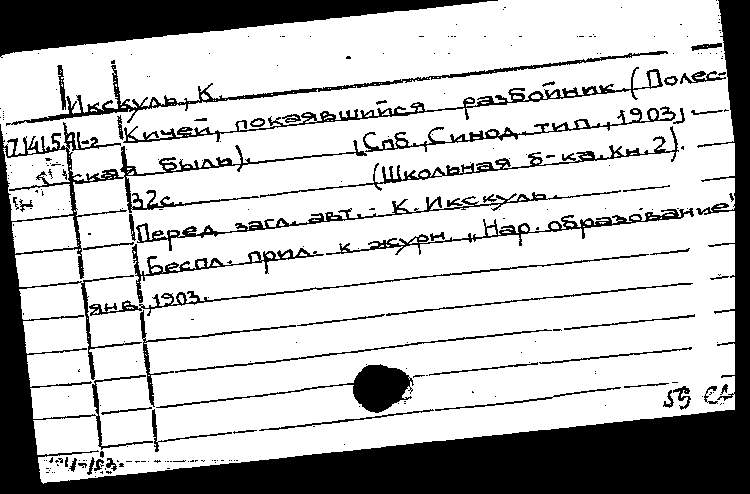 Икскуль, К.
17.141.5.91-2 Кичей, покаявшийся разбойник. (Полес-
ская быль). [Спб., Синод. тип., 1903].
32с. (Школьная б-ка. Кн. 2).
Перед загл. авт.: К. Икскуль.
Беспл. прил. к журн. „Нар. образование"
янв., 1903.
59